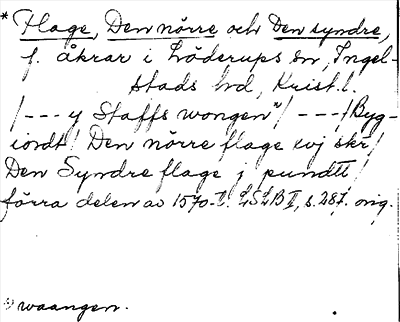 * Flage, Den nörre och Den syndre,
f. åkrar i Löderups sn, Ingel-
stads hd, Krist. l.
/--- y Staffs wongen x)/ ---/ Byg-
iordt/ Den nörre flage xvj skr/
Den Syndre flage j pundtt/
förra delen av 1570-t. LSLB II, s. 287. orig.
x) waangen.